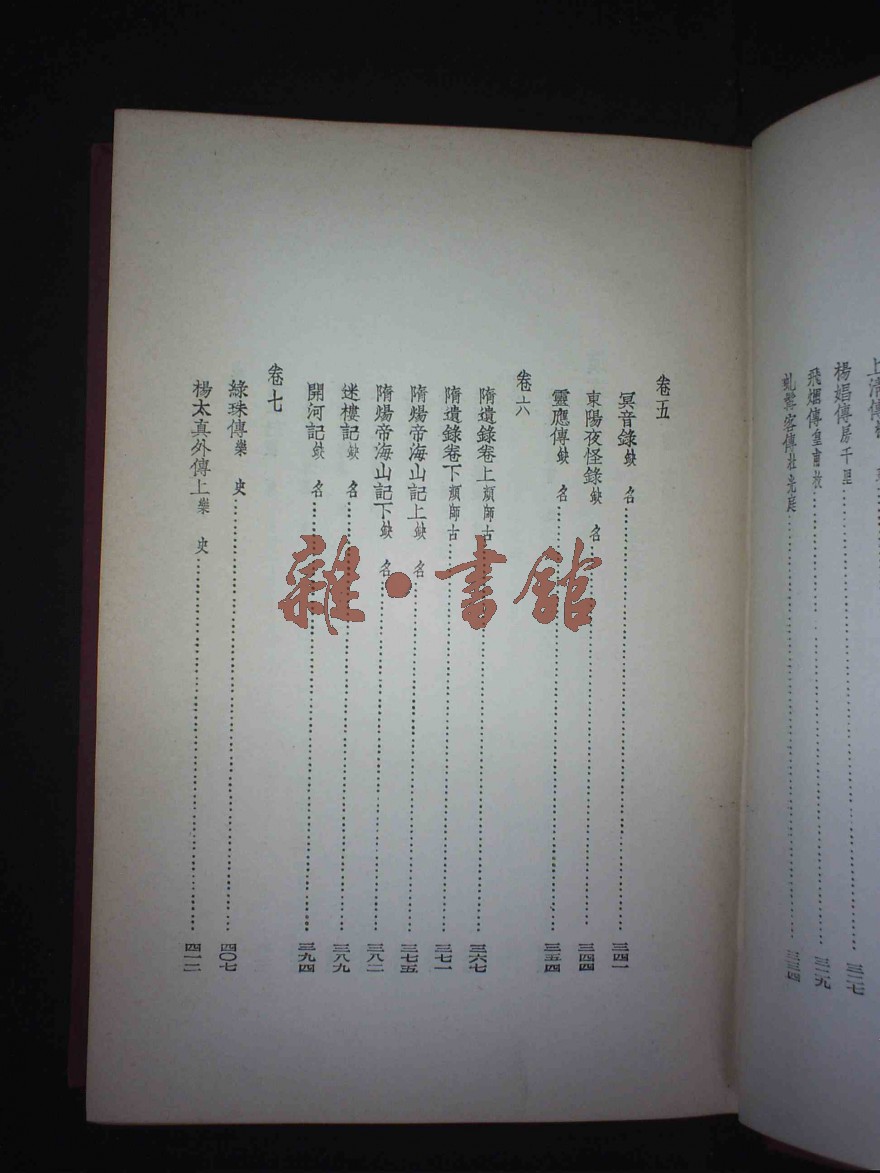 楊娼傳房千里……三二七
飛烟傳皇甫枚……三二九
虬髯客傳杜光庭……三三四
卷五
冥音錄缺　名……三四一
東陽夜怪錄缺　名……三四四
靈應傳缺　名……三五四
卷六
隋遺錄卷上顏師古……三六七
隋遺錄卷下顏師古……三七一
隋煬帝海山記上缺　名……三七五
隋煬帝海山記下缺　名……三八二
迷樓記缺　名……三八九
開河記缺　名……三九四
卷七
綠珠傳樂　史……四〇七
楊太真外傳上樂　史……四一二
雜·書館